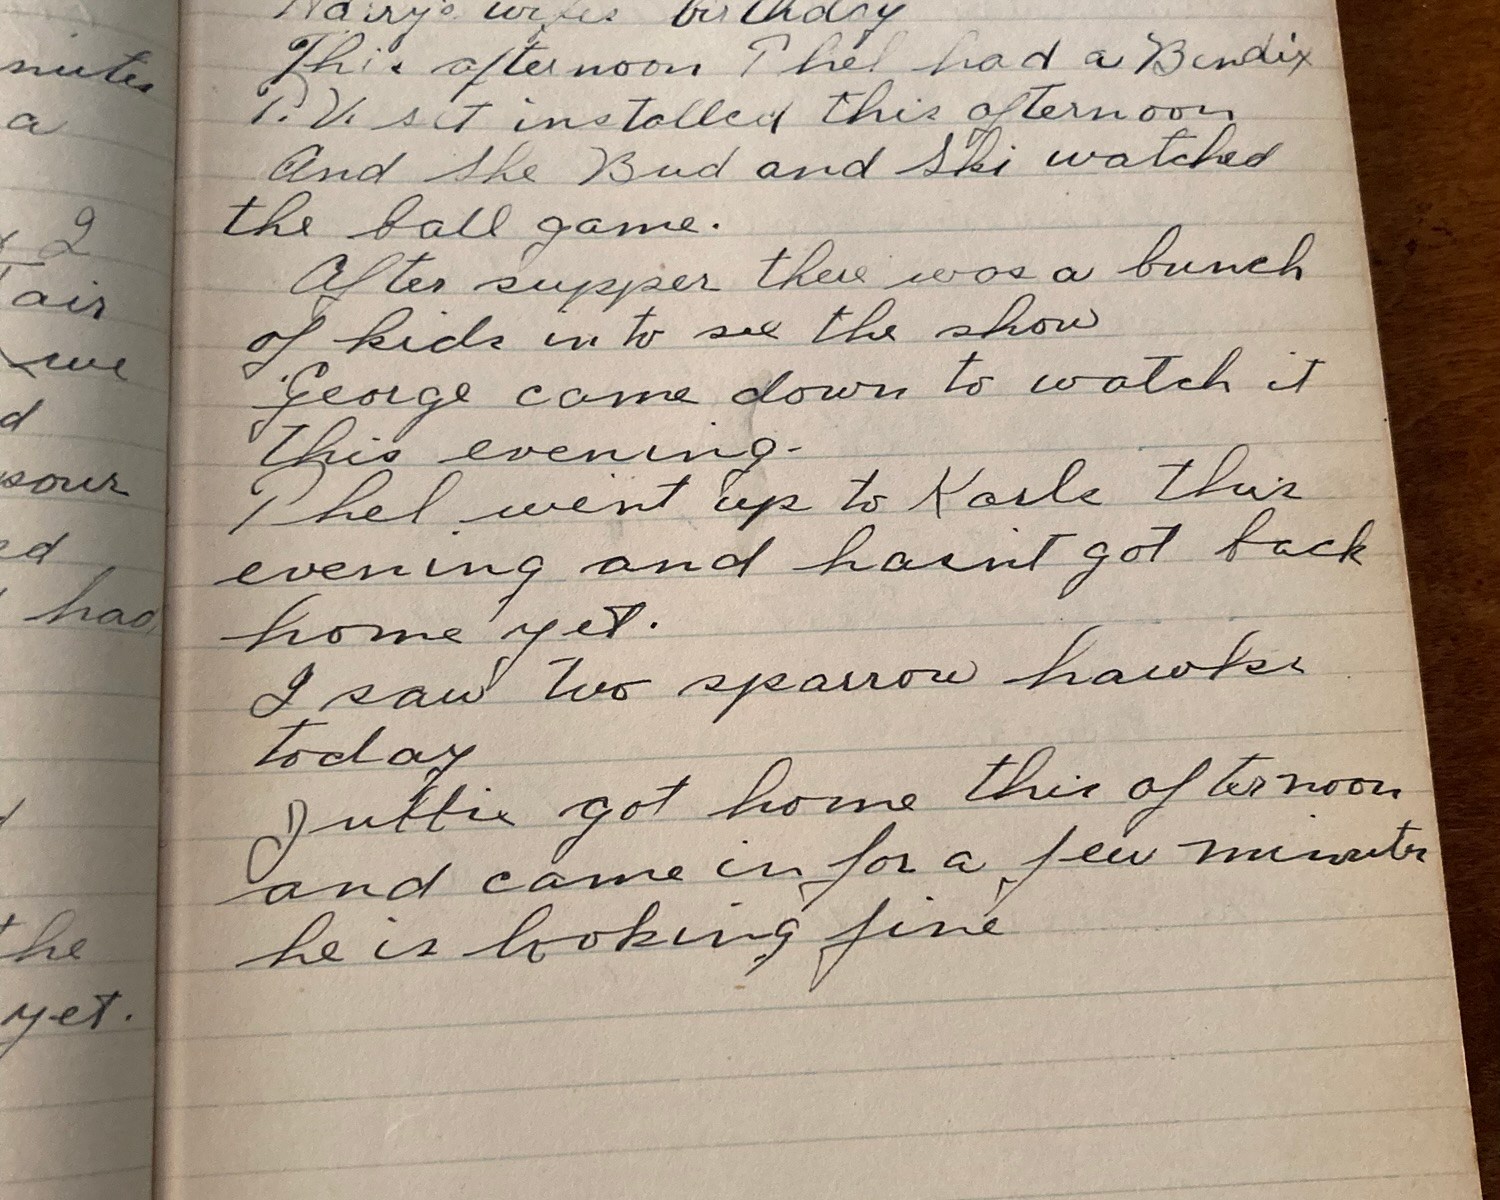 nutes
a
2
air
we
d
sour
ed
had
the
yet.
Harry's wifes birthday
This afternoon Thel had a Bendix
T.V. set installed this afternoon
And she Bud and Ski watched
the ball game.
After supper there was a bunch
of kids in to see the show
George came down to watch it
this evening.
Thel went up to Karls this
evening and hasn't got back
home yet.
I saw two sparrow hawks
today
Juttie got home this afternoon
and came in for a few minutes
he is looking fine